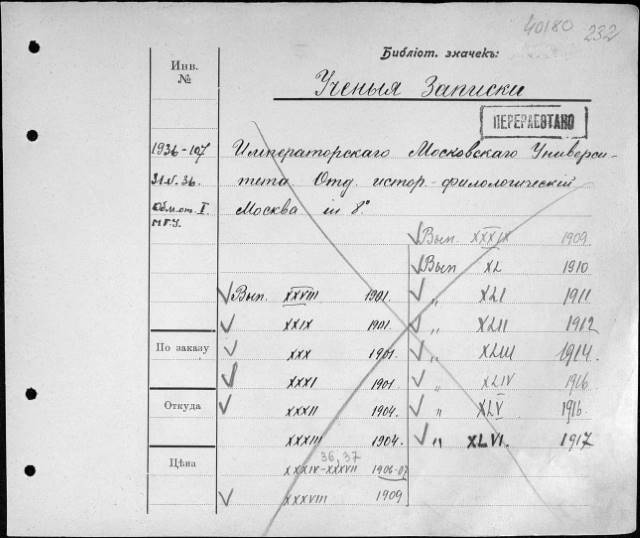 40180 232
Библіот. значекъ:
Инв.
№
Ученыя Записки
ПЕРЕРАБОТАНО
1936-107 Императорскаго Московскаго Универси-
31.V.36. тета. Отд. истор.-филологическій
Обм. от. I. Москва in 8°
М.Г.У.
Вып. XXXIX 1909.
Вып XL 1910
Вып. XXVIII 1901. „ XLI 1911
XXIX 1901. „ XLII 1912
По заказу XXX 1901. „ XLIII 1914.
XXXI 1901 „ XLIV 1916
Откуда XXXII 1904. „ XLV 1916.
XXXIII 1904. „ XLVI. 1917
36, 37
Цѣна XXXIV-XXXVII 1906-07
XXXVIII 1909